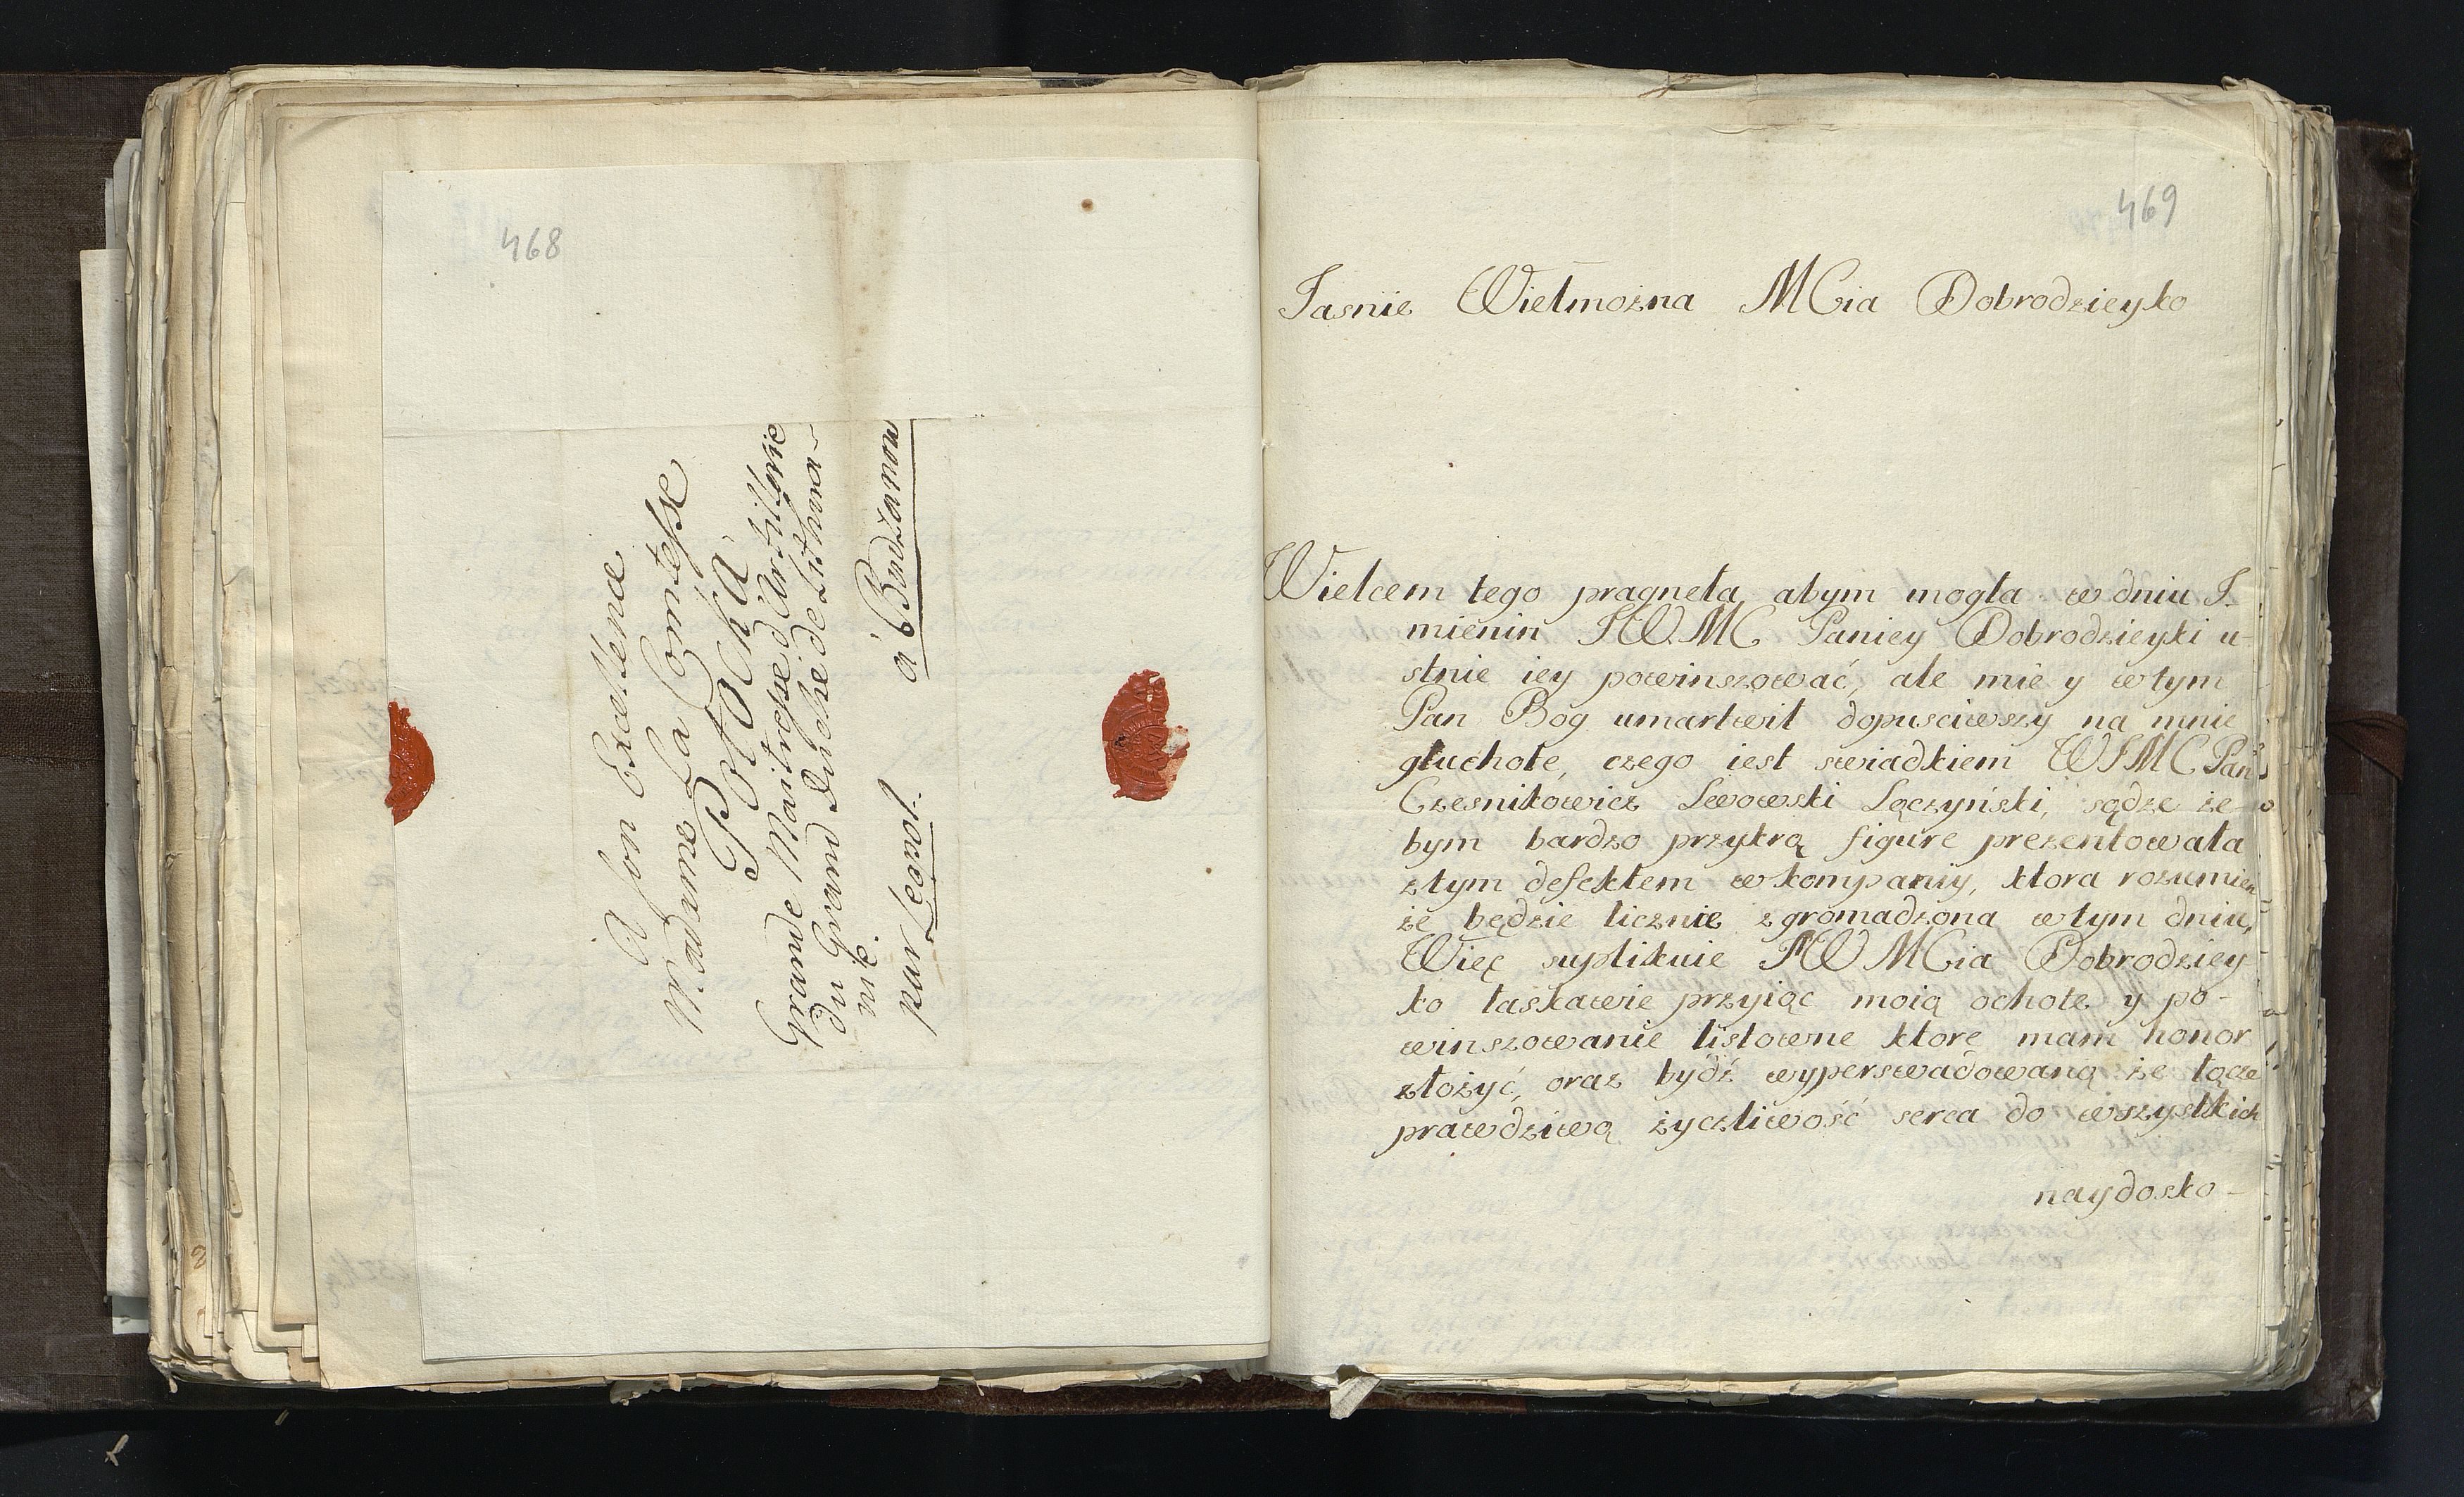 468
A son Excellence
Madame La Comtesse
Potocka
Grande Maitresse d'Artillerie
du Grand Duché de Lithua-
nie.
par Leopol. à Budzanow
469
Jasnie Wielmożna MCia Dobrodzieyko
Wielcem tego pragneła, abym mogła w dniu I.
mienin JWMC Paniey Dobrodzieyki u-
stnie iey powinszować, ale mie y wtym
Pan Bog umartwił dopusciwszy na mnie
głuchote, czego iest swiadkiem WJMC Pan
Czesnikowicz Lwowski Łączyński, sądze że-
bym bardzo przykrą figure prezentowała
ztym defektem w kompaniy, ktora rozumiem
że będzie licznie zgromadzona wtym dniu,
Więc suplikuie JWMCia Dobrodziey
ko łaskawie przyiąc moią ochote y po-
winszowanie listowne ktore mam honor
złożyć, oraz bydź wyperswadowaną że łącze
prawdziwą życzliwość serca do wszystkich
naydosko-